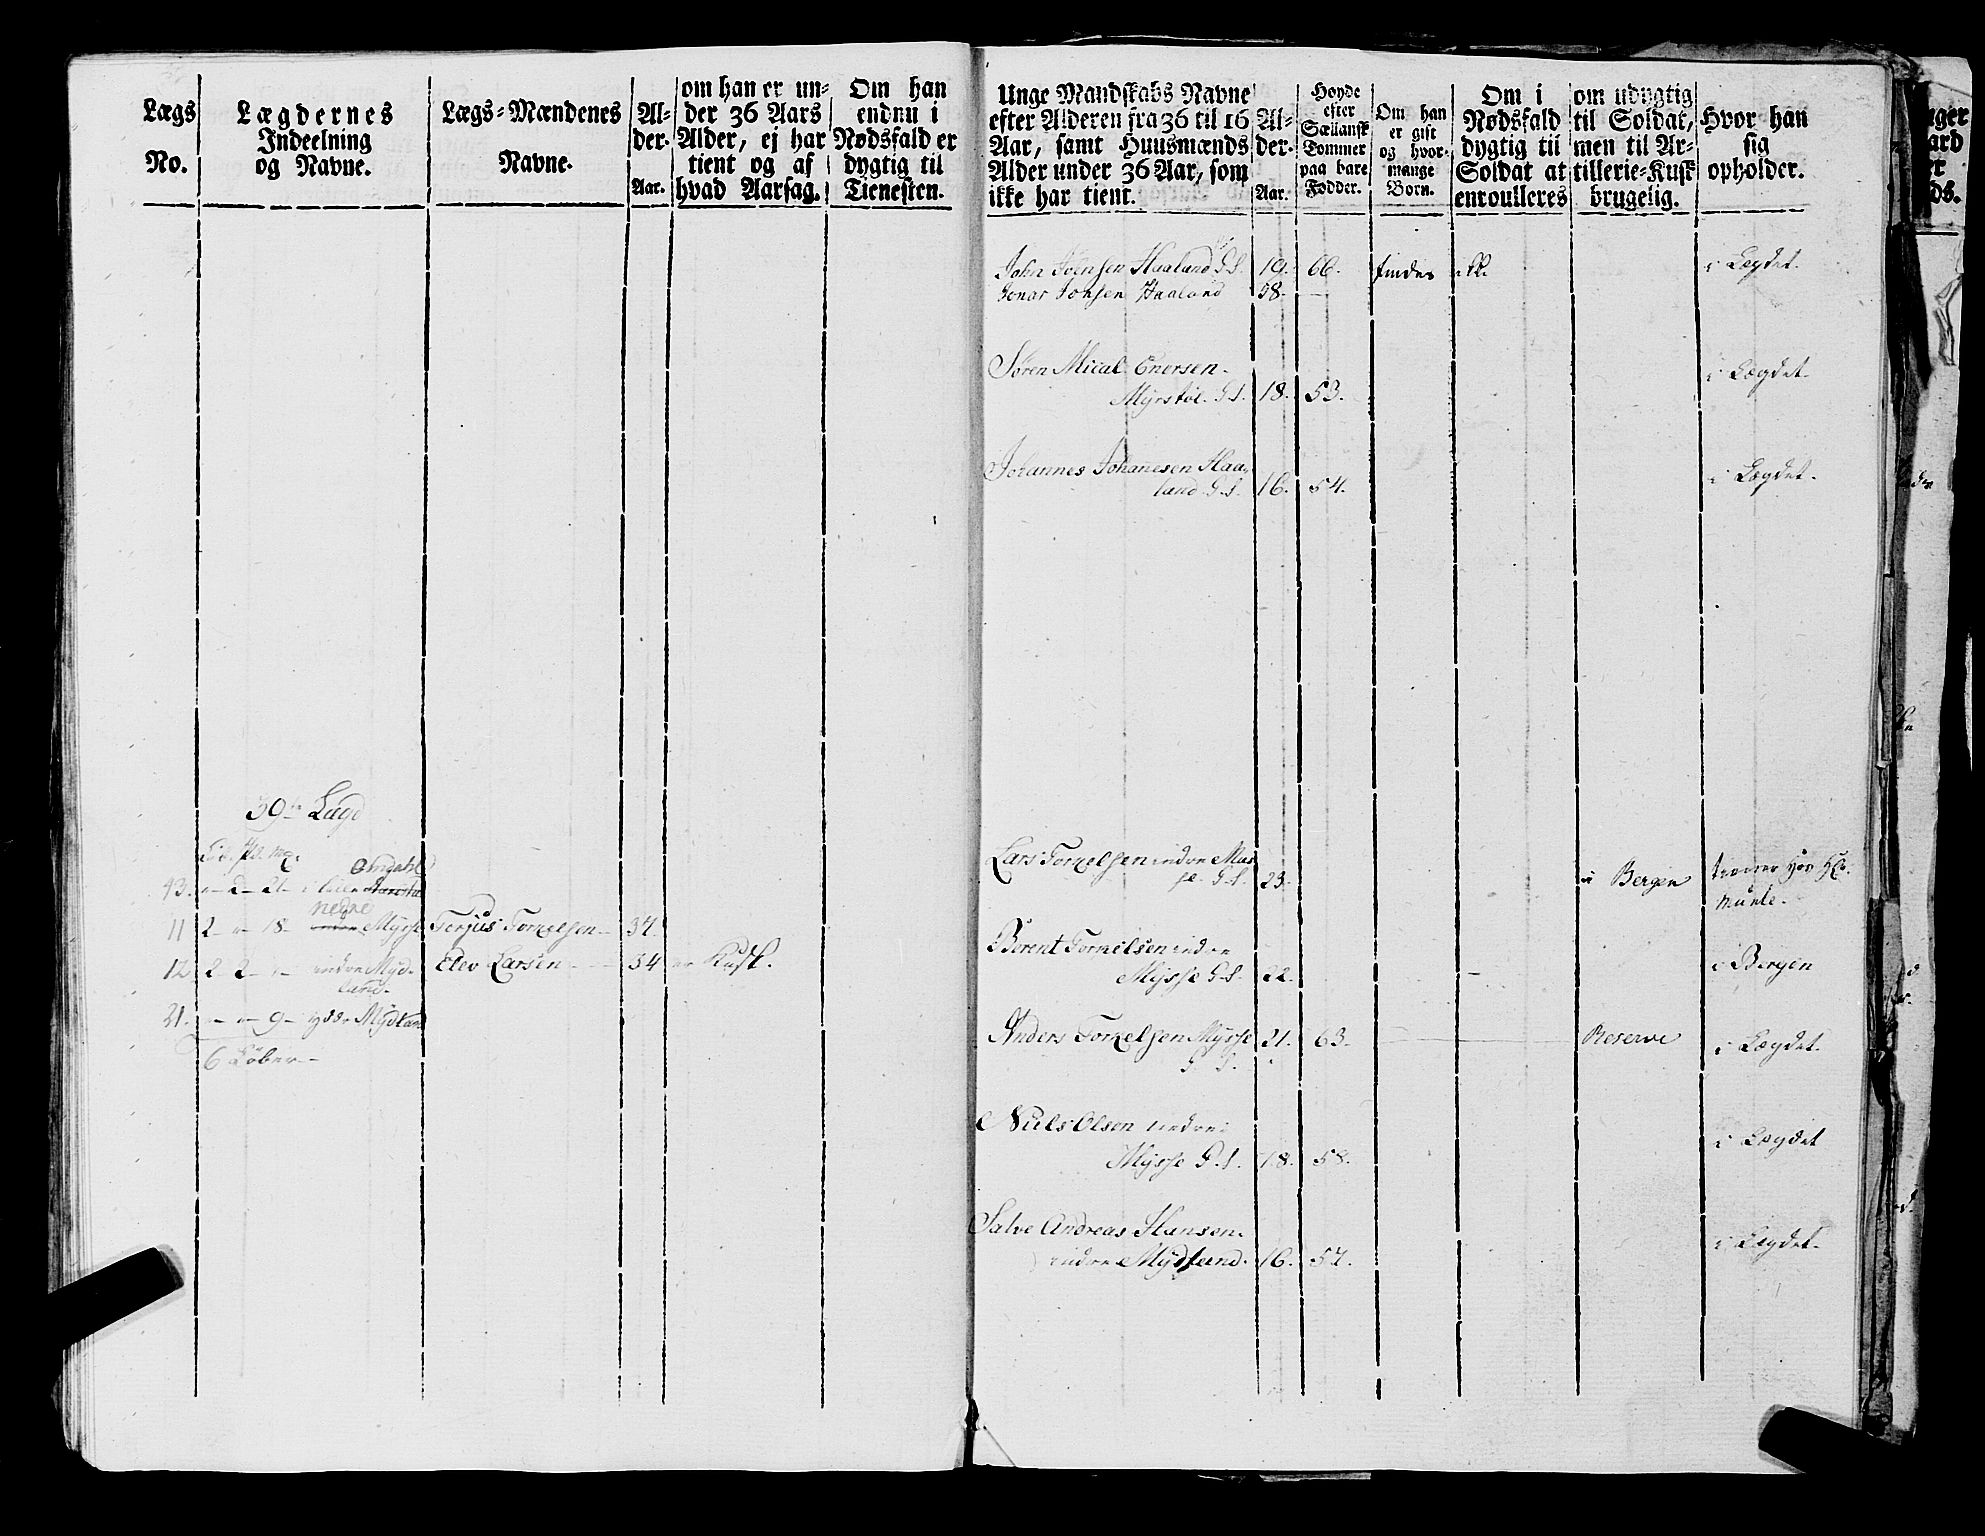 Lægs
No.
Lægdernes
Indeelning
og Navne.
Lægs-Mændenes
Navne.
Al-
der.
Aar.
om han er un-
der 36 Aars
Alder, ej har
tient og af
hvad Aarsag.
Om han
endnu i
Nødsfald er
dygtig til
Tienesten.
39te Lægd
Omdahl
43.
nedre
11 2 18 Mysse Terjus Tormelsen 34.
12 2 2 indre Myd- Elev Larsen 54 er Kusk.
land.
21. 9 ydre Mydland
6 Løber
Unge Mandskabs Navne
efter Alderen fra 36 til 16
Aar, samt Huusmænds
Alder under 36 Aar, som
ikke har tient.
Al-
der.
Aar.
Høyde
efter
Sællansk
Tommer
paa bare
Fødder.
Om han
er gift
og hvor-
mange
Børn.
Om i
Nødsfald
dygtig til
Soldat at
enroulleres
om udygtig
til Soldat,
men til Ar-
tillerie-Kusk
brugelig.
Hvor han
sig
opholder.
John Joensen Haaland G.S. 19. 66. findes ikk. i Lægdet.
Gonar Jonsen Haaland 58.
Søren Mical Enersen i Lægdet.
Myrstøl. G.S. 18. 53.
Johannes Johanesen Haa-
land G.S. 16. 54. i Lægdet.
Lars Tormelsen indre Mys-
se. G.S. 23. i Bergen tiener hos Hr.
Munte.
Berent Tormelsen indre
Mysse G.S. 22. i Bergen
Anders Tormelsen Mysse 21. 63. Reserve i Lægdet.
G S.
Niels Olsen indre
Mysse G.S. 18. 58. i Lægdet
Salve Andreas Hansen.
indre Mydland. 16. 57. i Lægdet.